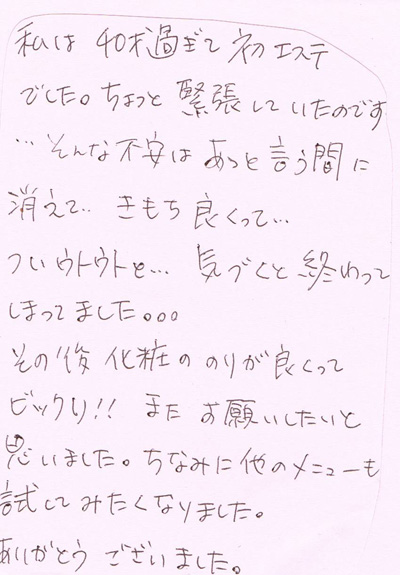 私は 40才過ぎて 初エステ
でした。ちょっと 緊張して いたのです
…そんな不安は あっと言う間に
消えて‥ きもち 良くって…
ついウトウトと… 気づくと終わって
しまってました。。。
その後 化粧の のりが良くって
ビックリ!! また お願いしたいと
思いました。ちなみに他のメニューも
試してみたくなりました。
ありがとう ございました。